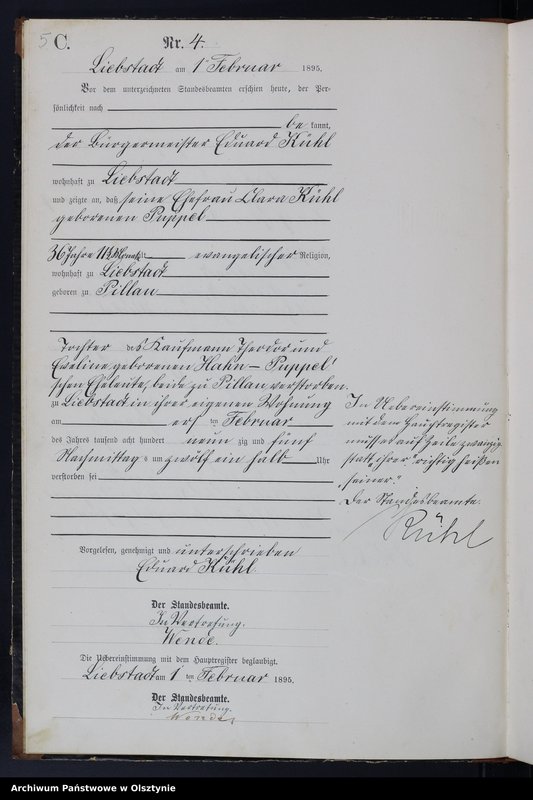 5 C. Nr. 4.
Liebstadt am 1ten Februar 1895.
Vor dem unterzeichneten Standesbeamten erschien heute, der Per-
sönlichkeit nach
be kannt,
der Bürgermeister Eduard Kühl
wohnhaft zu Liebstadt
und zeigte an, daß seine Ehefrau Clara Kühl
geborenen Puppel
36 Jahre 11½ Monat alt evangelischer Religion,
wohnhaft zu Liebstadt
geboren zu Pillau
Tochter des Kaufmann Theodor und
Eveline geborenen Hahn – Puppel'
schen Eheleute, beide zu Pillau verstorben.
zu Liebstadt in ihrer eigenen Wohnung
am ersten Februar
des Jahres tausend acht hundert neun zig und fünf
Nachmittags um zwölf ein halb Uhr
verstorben sei
Vorgelesen, genehmigt und unterschrieben
Eduard Kühl.
Der Standesbeamte.
In Vertretung.
Wende.
Die Uebereinstimmung mit dem Hauptregister beglaubigt.
Liebstadt am 1 ten Februar 1895.
Der Standesbeamte.
In Vertretung.
Wende.
In Uebereinstimmung
mit dem Hauptregister
muß es auf Zeile zwanzig
statt „ihrer" richtig heißen
„seiner."
Der Standesbeamte.
Kühl
Archiwum Państwowe w Olsztynie